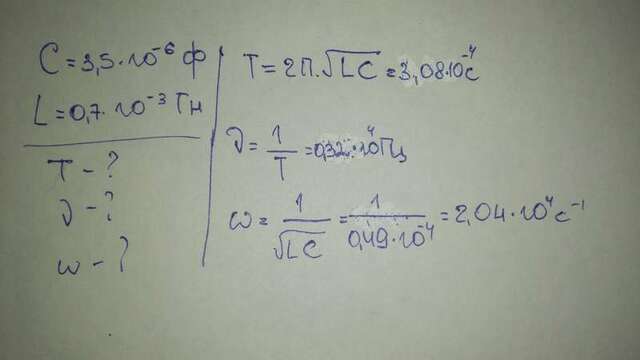 C = 3,5 · 10⁻⁶ Ф
L = 0,7 · 10⁻³ Гн
T - ?
ν - ?
ω - ?
T = 2П·√LC = 3,08·10⁻⁴ с
ν = 1/T = 0,32·10⁴ Гц
ω = 1/√LC = 1/0,49·10⁻⁴ = 2,04·10⁴ с⁻¹